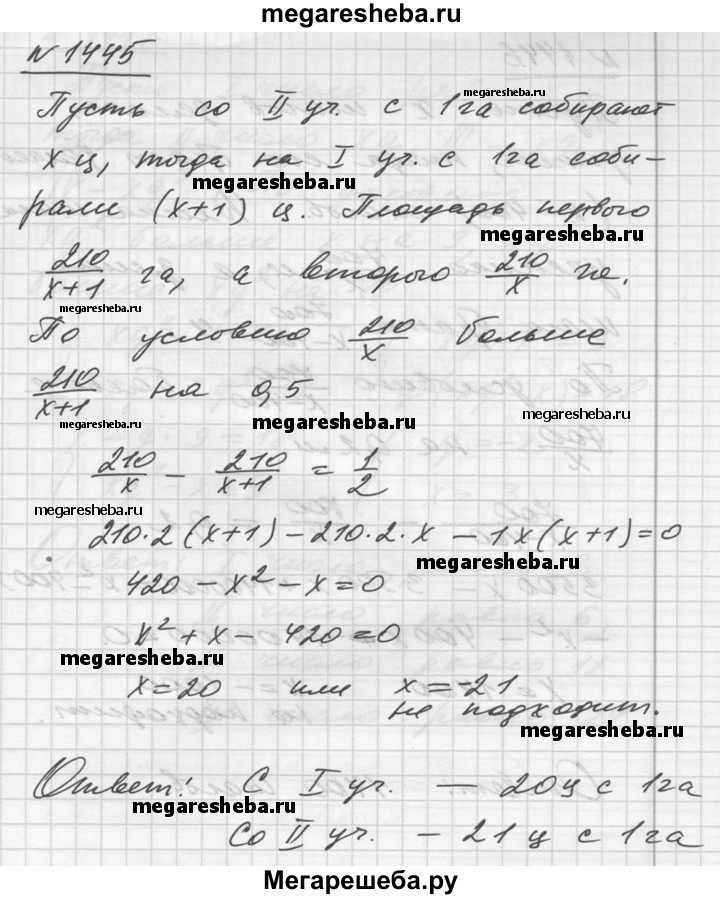 megaresheba.ru
N 1445
Пусть со II уч. с 1га собирают
megaresheba.ru
x ц, тогда на I уч. с 1га соби-
megaresheba.ru
рали (x+1) ц. Площадь первого
megaresheba.ru
210/(x+1) га, а второго 210/x га.
megaresheba.ru
По условию 210/x больше
210/(x+1) на 0,5
megaresheba.ru
megaresheba.ru
megaresheba.ru
210/x − 210/(x+1) = 1/2
megaresheba.ru
210·2(x+1) − 210·2·x − 1x(x+1)=0
megaresheba.ru
420 − x² − x = 0
x² + x − 420 = 0
megaresheba.ru
x=20 или x=-21
не подходит.
megaresheba.ru
Ответ: С I уч. — 20ц с 1га
megaresheba.ru
Со II уч. — 21ц с 1га
Мегарешеба.ру